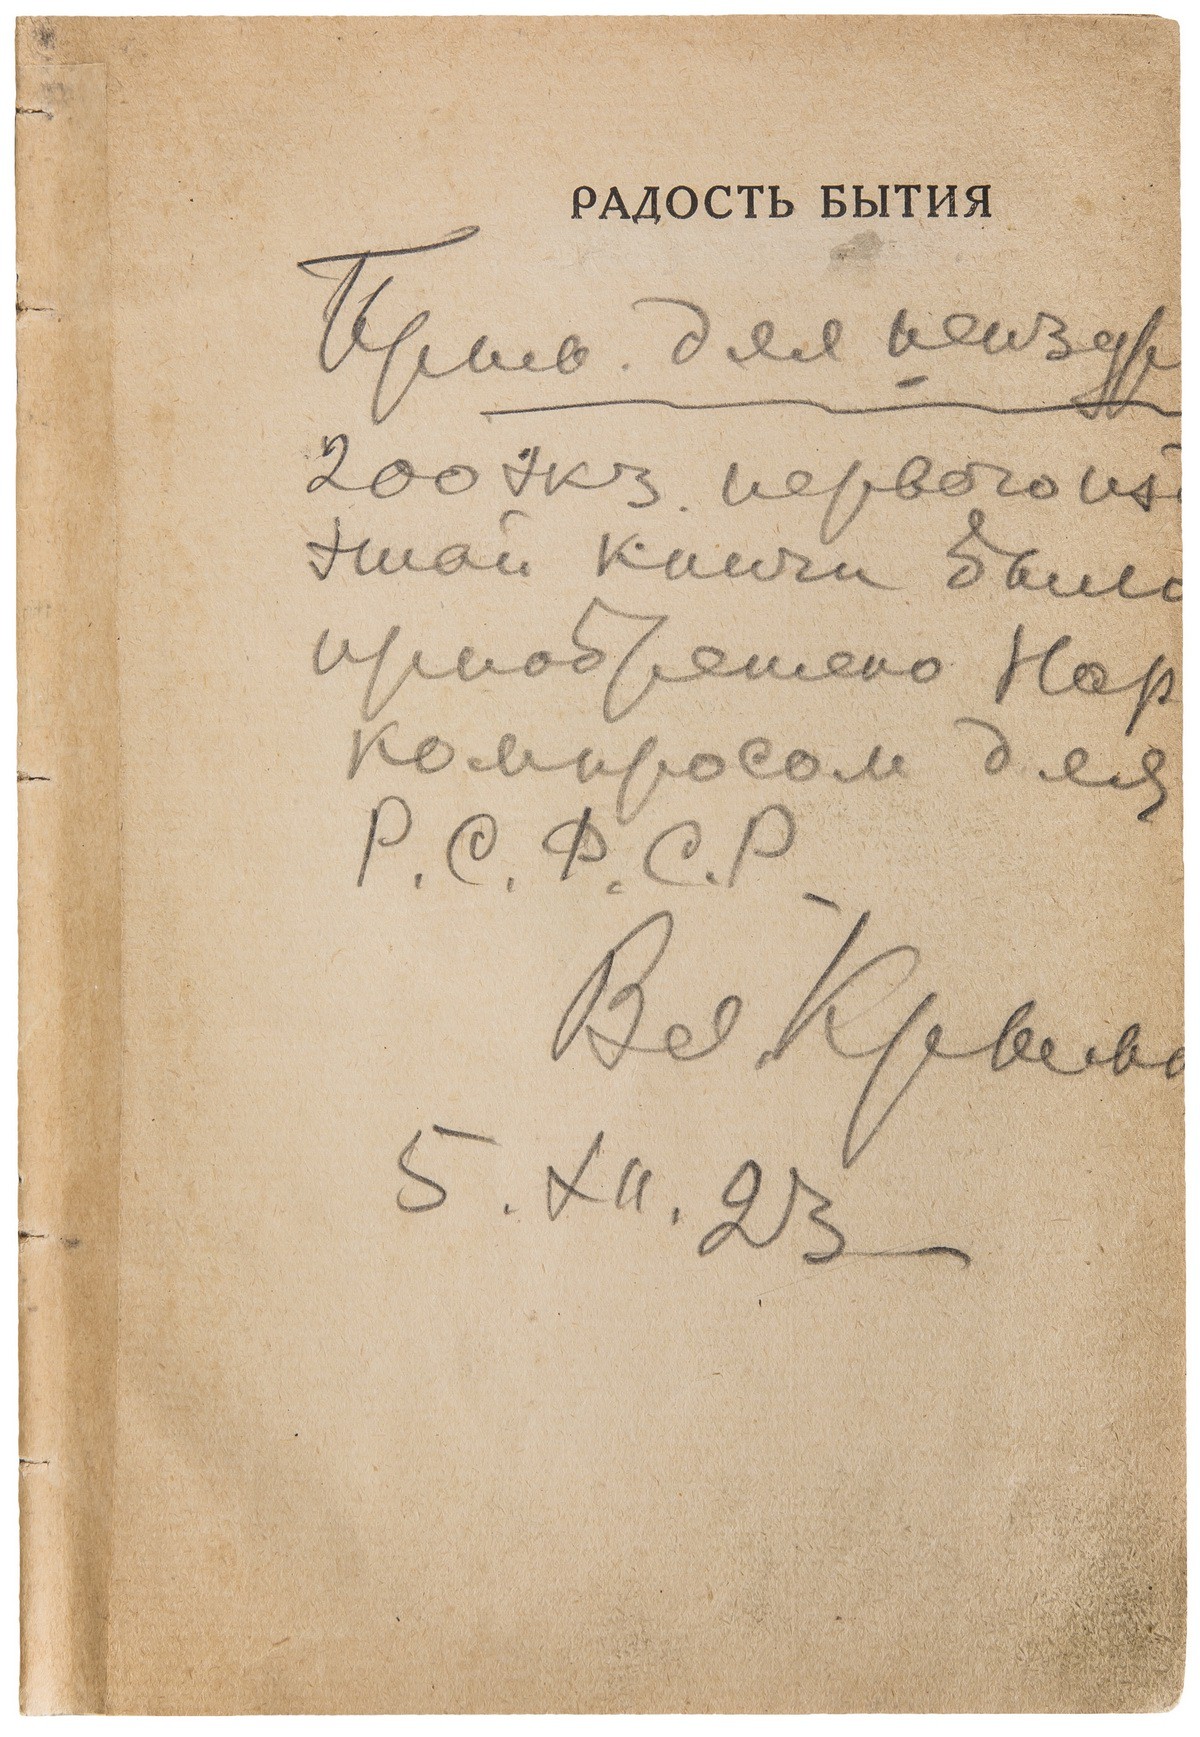 РАДОСТЬ БЫТИЯ
Прим. для
200 экз. первого из
этой книги было
приобретено Нар
компросом для
Р.С.Ф.С.Р.
Вл.
5.XII.23